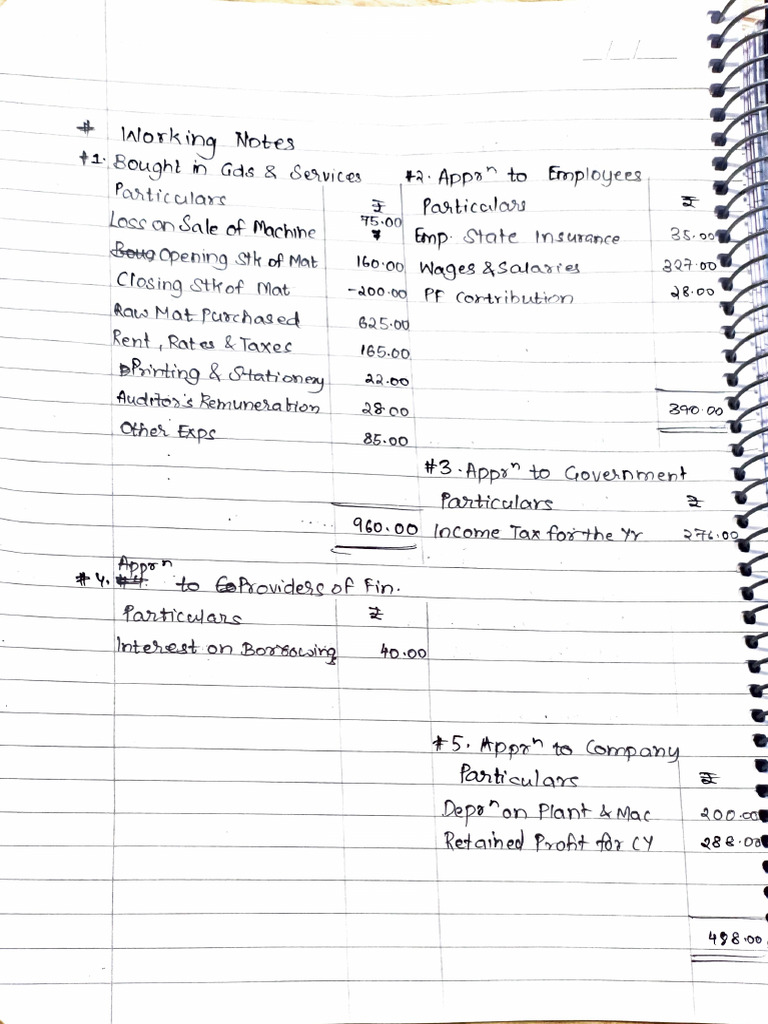 # Working Notes
#1. Bought in Gds & Services
Particulars ₹
Loss on Sale of Machine 75.00
Opening Stk of Mat 160.00
Closing Stk of Mat -200.00
Raw Mat Purchased 625.00
Rent, Rates & Taxes 165.00
Printing & Stationery 22.00
Auditor's Remuneration 28.00
Other Exps 85.00
960.00
#2. Apprⁿ to Employees
Particulars ₹
Emp. State Insurance 35.00
Wages & Salaries 327.00
PF Contribution 28.00
390.00
#3. Apprⁿ to Government
Particulars ₹
Income Tax for the Yr 276.00
#4. Apprⁿ to Providers of Fin.
Particulars ₹
Interest on Borrowing 40.00
#5. Apprⁿ to Company
Particulars ₹
Deprⁿ on Plant & Mac 200.00
Retained Profit for CY
498.00